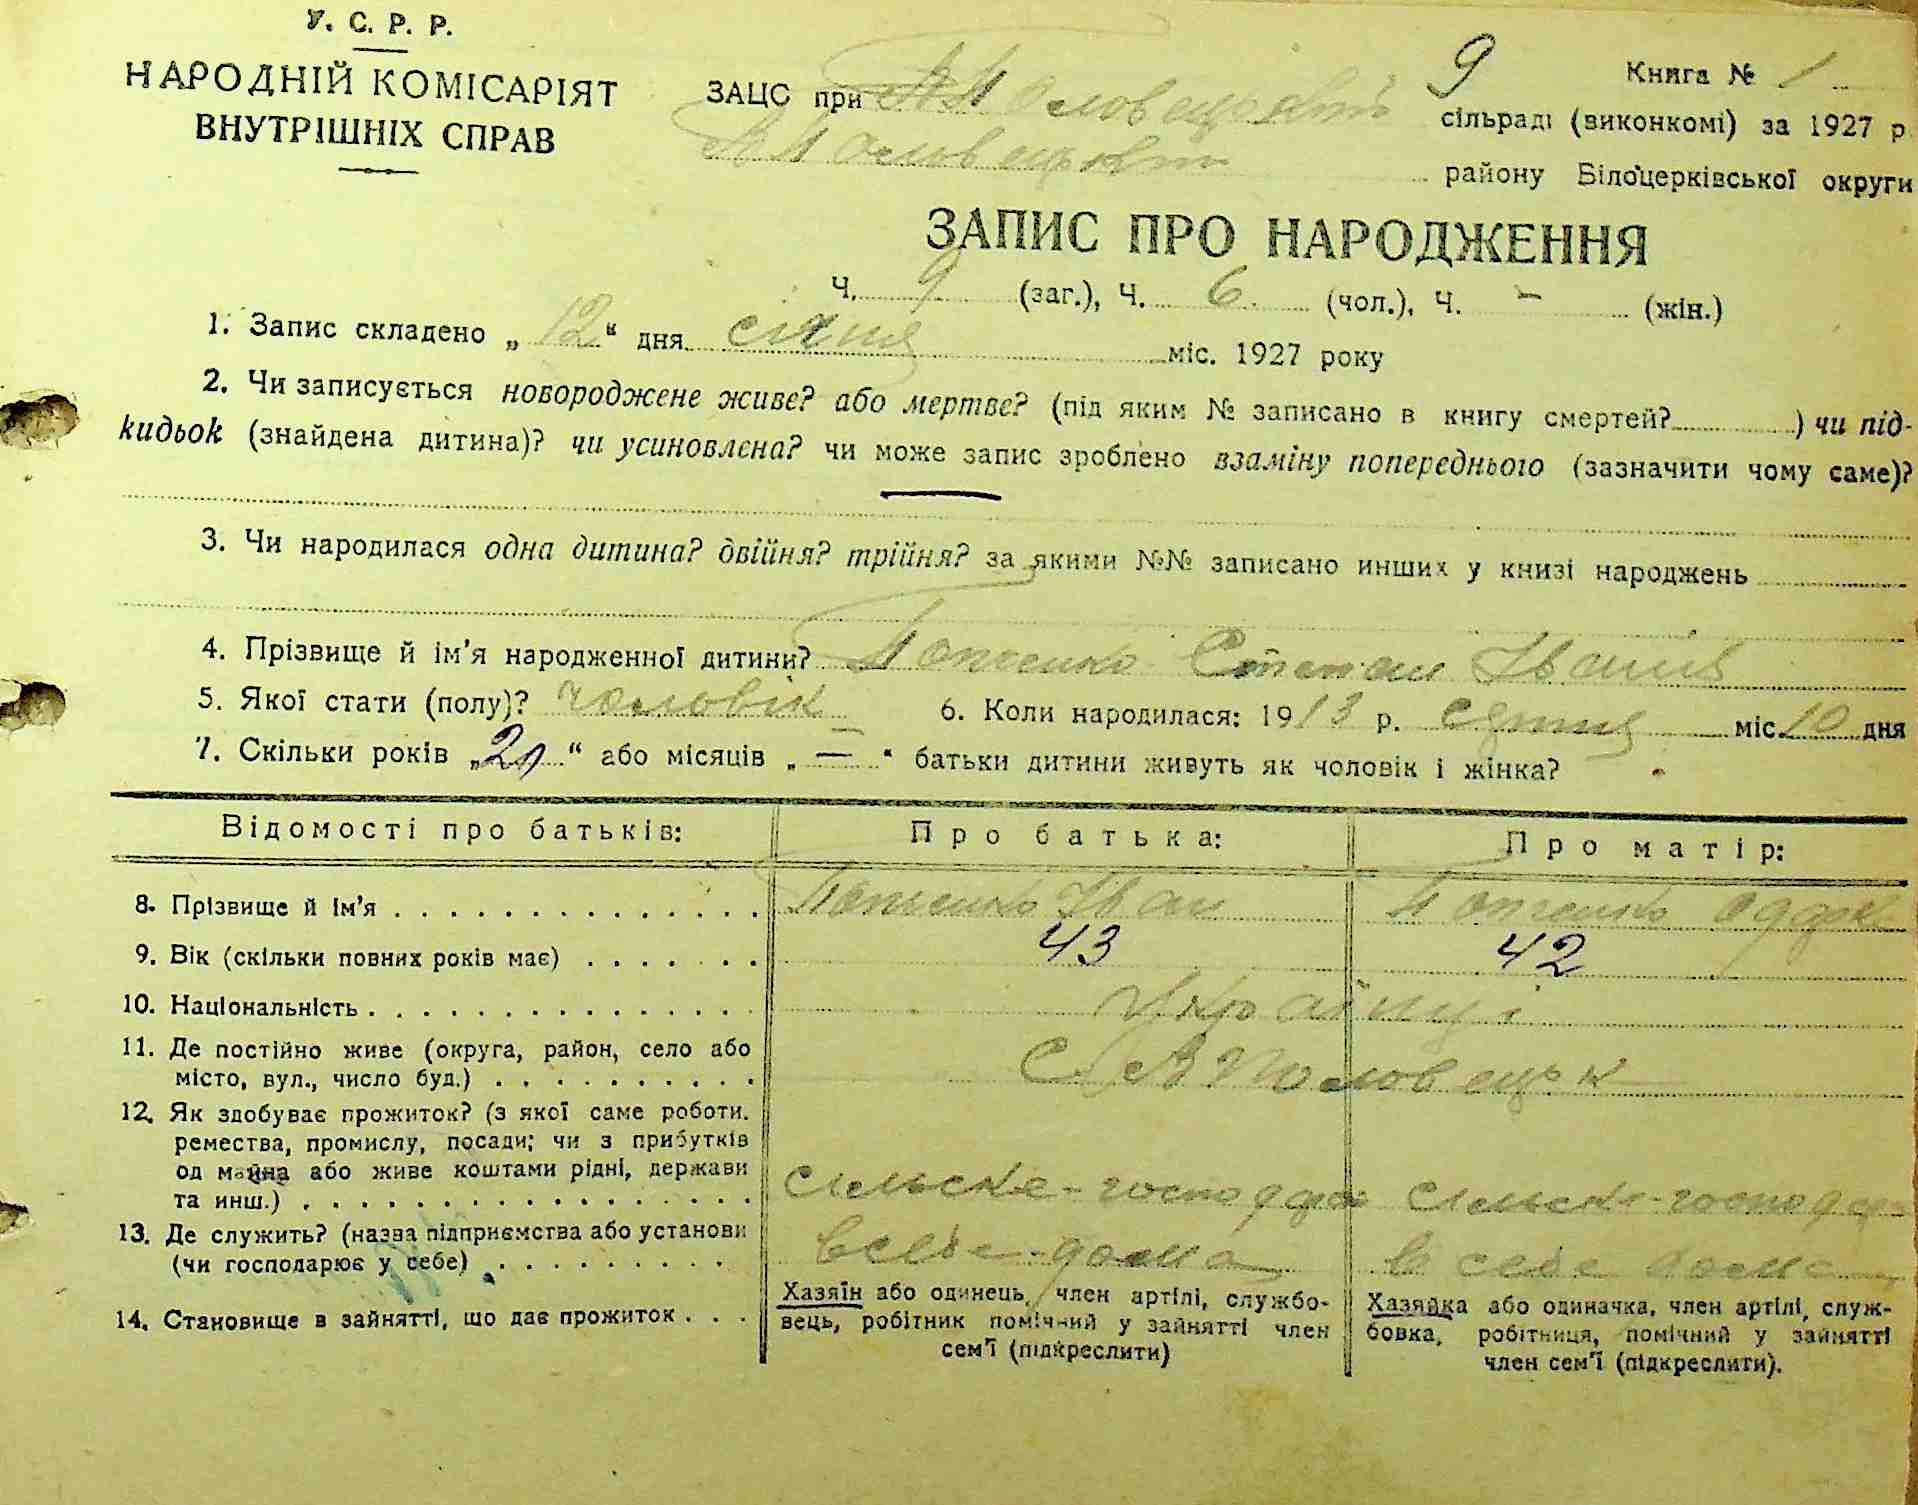 У. С. Р. Р.
НАРОДНІЙ КОМІСАРІЯТ
ВНУТРІШНІХ СПРАВ
Книга № 1
9
ЗАЦС при сільраді (виконкомі) за 1927 р
району Білоцерківської округи
ЗАПИС ПРО НАРОДЖЕННЯ
Ч. 9 (заг.), Ч. 6 (чол.), Ч. - (жін.)
1. Запис складено „12“ дня січня міс. 1927 року
2. Чи записується новороджене живе? або мертве? (під яким № записано в книгу смертей? ) чи під-
кидьок (знайдена дитина)? чи усиновлена? чи може запис зроблено взаміну попереднього (зазначити чому саме)?
3. Чи народилася одна дитина? двійня? трійня? за якими №№ записано инших у книзі народжень
4. Прізвище й ім'я народженної дитини? Степан Іванів
5. Якої стати (полу)? чоловік 6. Коли народилася: 1913 р. міс. 10 дня
7. Скільки років „20“ або місяців „—“ батьки дитини живуть як чоловік і жінка?
Відомості про батьків: Про батька: Про матір:
8. Прізвище й ім'я Іван
9. Вік (скільки повних років має) 43 42
10. Національність Українці
11. Де постійно живе (округа, район, село або
місто, вул., число буд.) С
12. Як здобуває прожиток? (з якої саме роботи.
ремества, промислу, посади; чи з прибутків
од майна або живе коштами рідні, держави
та инш.) Сільске-господар Сільске-господар
13. Де служить? (назва підприємства або установи
(чи господарює у себе) в себе дома в себе дома
14. Становище в зайнятті, що дає прожиток
Хазяїн або одинець, член артілі, службо-
вець, робітник помічний у зайнятті член
сем'ї (підкреслити)
Хазяйка або одиначка, член артілі, служ-
бовка, робітниця, помічний у зайнятті
член сем'ї (підкреслити).